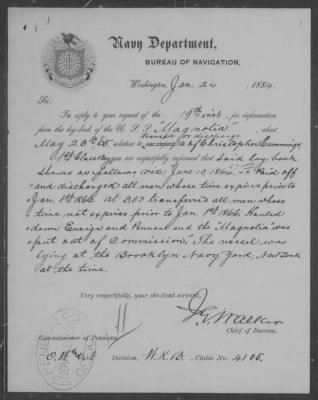 Navy Department,
BUREAU OF NAVIGATION,
Washington, Jan. 24, 1884.
Sir:
In reply to your request of the 19th inst. for information
from the log-book of the U. S. S. "Magnolia", about
transfer or discharge
May 20th, 65, relative to of Christopher Cummings,
1st Cl you are respectfully informed that said log book
shows as follows viz: June 10, 186 Paid off
and discharged all men whose time expires prior to
Jan 1st 1866. At 3.00 transferred all men whose
time not expires prior to Jan. 1st 1866. Hauled
down Ensign and Pennant and the "Magnolia" was
put out of Commission". The vessel was
lying at the Brooklyn Navy Yard, New York
at the time.
Very respectfully, your obedient servant,
J G Walker
Chief of Bureau.
Commissioner of Pensions
Division, W.K.B. Claim No. 4105.